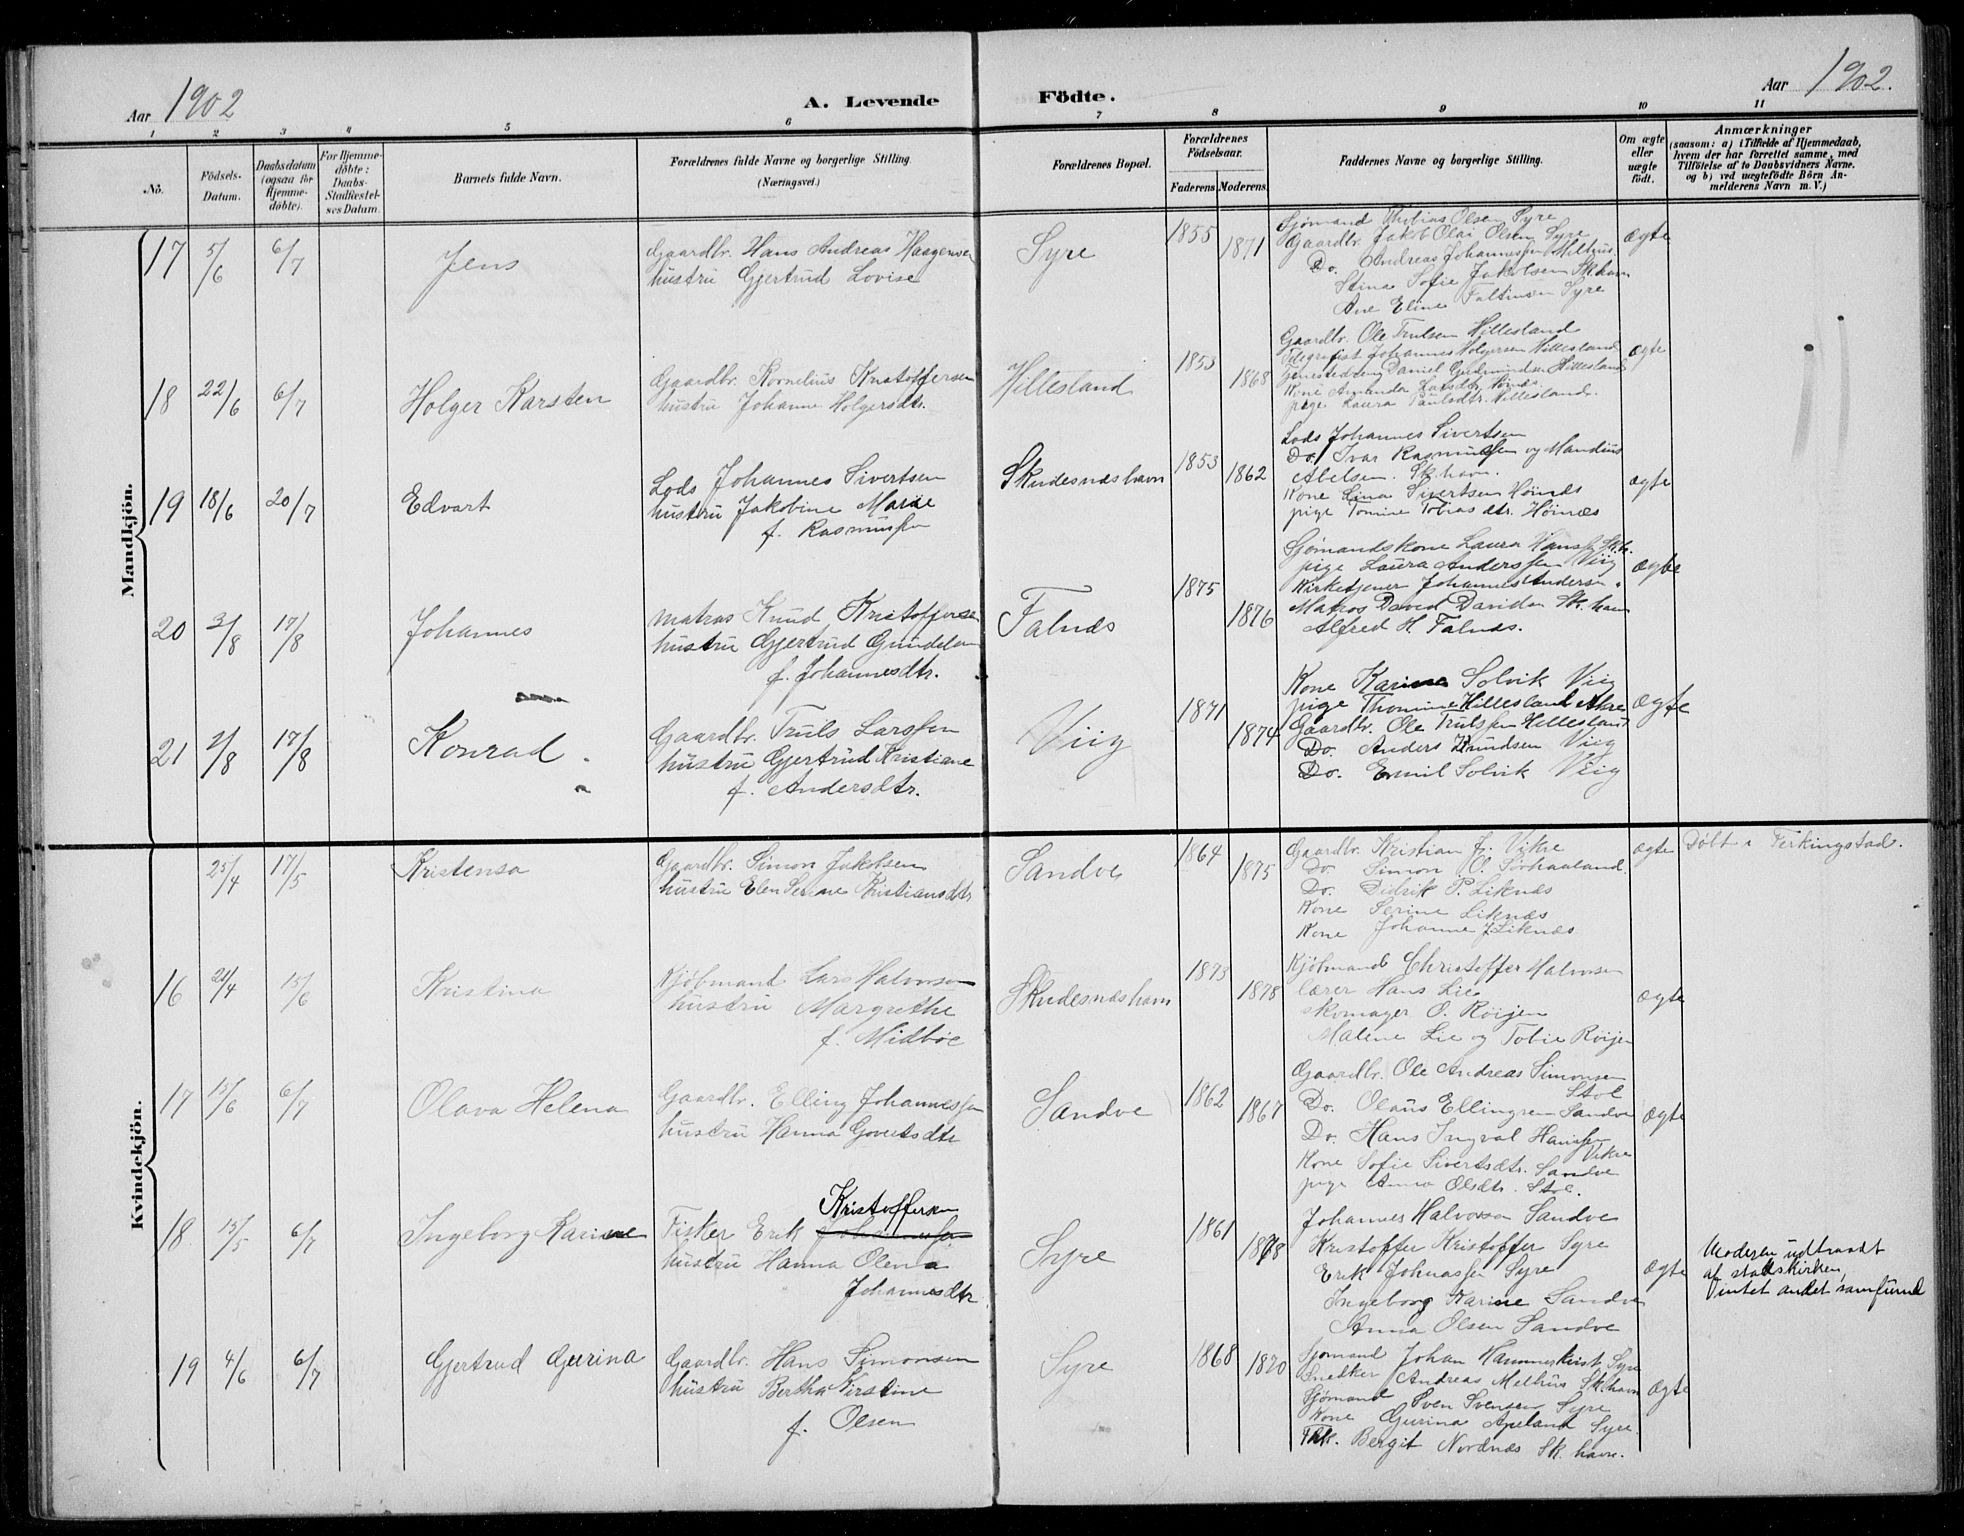 Aar 1902
A. Levende Födte.
Aar 1902.
1 2 3 4 5 6 7 8 9 10 11
No.
Födsels-Datum.
Daabsdatum (ogsaa for Hjemme-döbte).
For Hjemme-döbte: Daabs-Stadfæstel-ses Datum.
Barnets fulde Navn.
Forældrenes fulde Navne og borgerlige Stilling.
(Næringsvei.)
Forældrenes Bopæl.
Forældrenes Födselsaar.
Faderens Moderens.
Faddernes Navne og borgerlige Stilling.
Om ægte eller uægte födt.
Anmærkninger
(saasom: a) i Tilfælde af Hjemmedaab,
hvem der har forrettet samme, med
Tilföielse af to Daabsvidners Navne.
og b) ved uægtefödte Börn An-
melderens Navn m. V.)
Mandkjön.
17 5/6 6/7 Jens
Gaardbr. Hans Andreas Haagensen
hustru Gjertrud Lovise
Syre 1855 1871
Sjömand Thobias Olsen Syre
Gaardbr. Jakob Olai Olsen Syre
Do. Andreas Johannessen Melhus
Stina Sofie Jakobsen Sk.havn
Ane Eline Faltinsen Syre
ægte
18 22/6 6/7 Holger Karsten
Gaardbr. Kornelius Kristoffersen
hustru Johanne Holgersdtr.
Hillesland 1853 1868
Gaardbr. Ole Trulsen Hillesland
Telegrafist Johannes Holgersen Hillesland
Tjenestedreng Daniel Gudmundsen Hillesland
Kone Amanda Larsdtr. Hönes
pige Laura Paulsdtr. Hillesland.
ægte
19 18/6 20/7 Edvart
Lods Johannes Sivertsen
hustru Jakobine Marie
f. Rasmussen
Skudesnæshavn 1853 1862
Lods Johannes Sivertsen
Do. Ivar Rasmussen og Mandius
Abelsen. Sk.havn.
Kone Lina Sivertsen Höinæs
pige Tomine Tobiasdtr. Höinæs
ægte
20 3/8 17/8 Johannes
matros Knud Kristoffersen
hustru Gjertrud Gundela
f. Johannesdtr.
Falnæs 1875 1876
Sjömandskone Laura Hansen Sk.h.
pige Laura Anderssen Viig
Kirketjener Johannes Andersen "
Matros David Davidsen Sk. havn
Alfred H. Falnæs.
ægte
21 2/8 17/8 Konrad
Gaardbr. Truls Larssen
hustru Gjertrud Kristiane
f. Andersdtr.
Viig 1871 1874
Kone Karine Solvik Viig
pige Thomine Hillesland Akre
Gaardbr. Ole Trulssen Hillesland
Do. Anders Knudsen Viig
Do. Emil Solvik Viig
ægte
Kvindekjön.
25/4 17/5 Kristensa
Gaardbr. Simon Jakobsen
hustru Elen Serine Kristiansdtr
Sandve 1864 1875
Gaardbr. Kristian J. Vikre
Do. Simon O. Sörhaaland.
Do. Didrik P. Liknæs
Kone Serine Liknæs
Kone Johanne J. Liknæs
ægte
Döbt i Ferkingstad.
16 21/4 15/6 Kristina
Kjöbmand Lars Halvorsen
hustru Margrethe
f. Midböe
Skudesnæshavn 1873 1878
Kjöbmand Christoffer Halvorsen
lærer Hans Lie
skomager O. Röijen
Malene Lie og Tobie Röijen
ægte
17 15/6 6/7 Olava Helena
Gaardbr. Elling Johannessen
hustru Hanna Govertsdtr
Sandve 1862 1867
Gaardbr. Ole Andreas Simonsen
Stol
Do. Olaus Ellingsen Sandve
Do. Hans Ingval Hanssen
Vikre
Kone Sofie Sivertsdtr. Sandve
pige Anna Olsdtr. Stol.
ægte
18 15/5 6/7 Ingeborg Karine
Kristoffersen
Fisker Erik Johannessen
hustru Hanna Olena
Johannesdtr
Syre 1861 1878
Johannes Halvorsen Sandve
Kristoffer Kristoffer Syre
Erik Johnassen Syre
Ingeborg Karine Sandve
Anna Olsen Sandve
ægte
Moderen udtraadt
af statskirken,
intet andet samfund
19 4/6 6/7 Gjertrud Gurina
Gaardbr. Hans Simonsen
hustru Bertha Kirstine
f. Olsen
Syre 1868 1870
Sjömand Johan Hammerkvist Syre
Snedker Andreas Melhus Sk.havn
Sjömand Sven Svensen Syre
Kone Gurina Apeland Syre
Frk. Bergit Nordnæs Sk. havn.
ægte